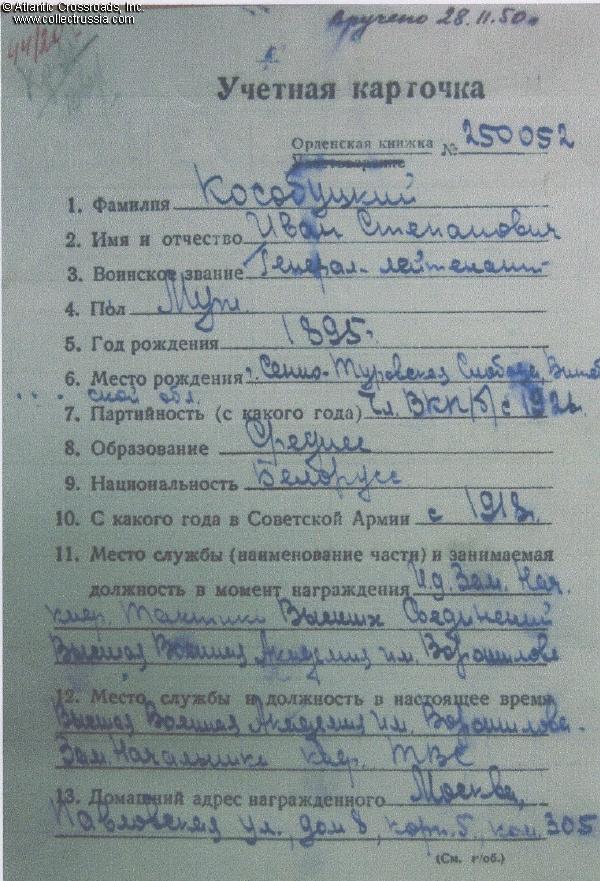 © Atlantic Crossroads, Inc.
www.collectrussia.com
вручено 28.11.50г
44/24
Учетная карточка
Орденская книжка № 250052
Удостоверение
1. Фамилия Кособуцкий
2. Имя и отчество Иван Степанович
3. Воинское звание Генерал-лейтенант
4. Пол Муж.
5. Год рождения 1895г.
6. Место рождения г. Сенно-Туровская Слобода, Витеб
ской обл.
7. Партийность (с какого года) Чл. ВКП(б) с 192
8. Образование Среднее
9. Национальность Белорусс
10. С какого года в Советской Армии с 1918г.
11. Место службы (наименование части) и занимаемая
должность в момент награждения И.д. Зам. Нач.
кафр. Тактики Высших Соединений
Высшая Военная Академия им. Ворошилова
12. Место службы и должность в настоящее время
Высшая Военная Академия им. Ворошилова -
Зам. Начальника кафр. ТВС
13. Домашний адрес награжденного Москва,
Павловская ул., дом 8, корп. 5, ком. 305
(См. н/об.)